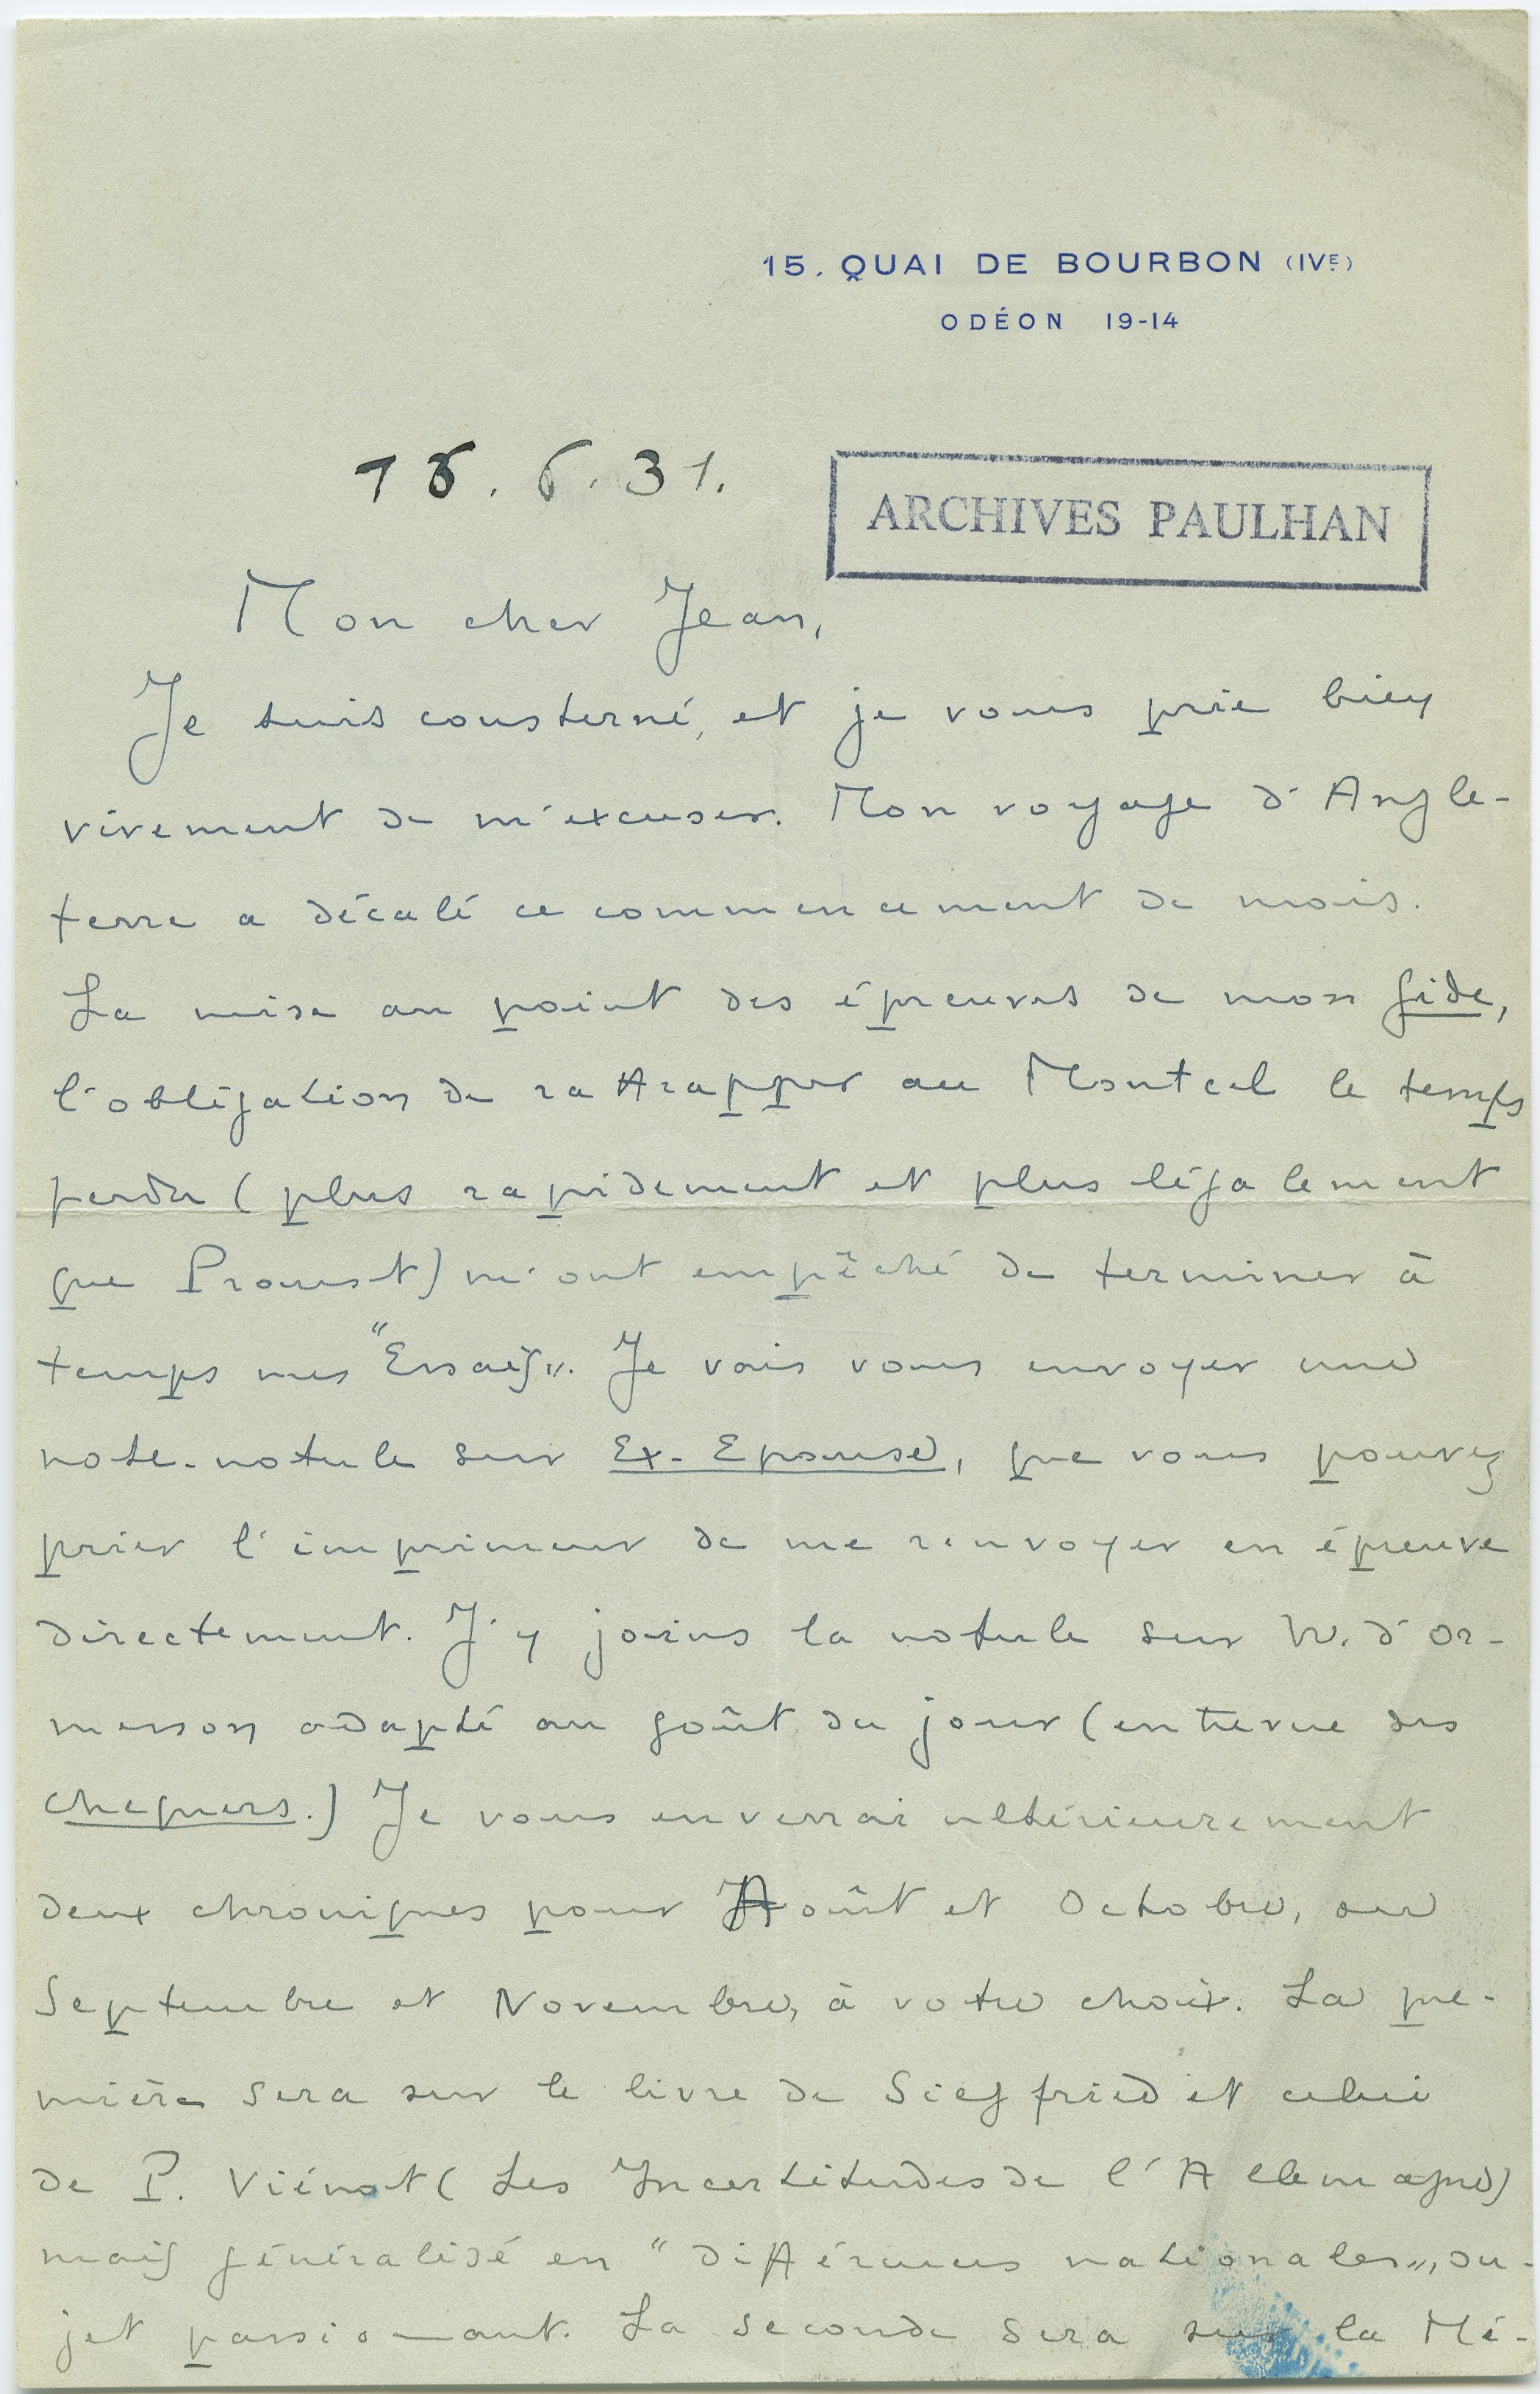 15. QUAI DE BOURBON (IVE)
ODÉON 19-14
18. 6. 31.
ARCHIVES PAULHAN
Mon cher Jean,
Je suis consterné, et je vous prie bien
vivement de m'excuser. Mon voyage d'Angle-
terre a décalé ce commencement de mois.
La mise au point des épreuves de mon Gide,
l'obligation de rattrapper au Montcel le temps
perdu (plus rapidement et plus légalement
que Proust) m'ont empêché de terminer à
temps mes "Essais". Je vais vous envoyer une
note-notule sur Ex-Epouse, que vous pouvez
prier l'imprimeur de me renvoyer en épreuve
directement. J'y joins la notule sur W. d'Or-
messon adapté au goût du jour (entrevue des
chequers.) Je vous enverrai ultérieurement
deux chroniques pour Août et Octobre, ou
Septembre et Novembre, à votre choix. La pre-
mière sera sur le livre de Siegfried et celui
de P. Viénot (Les Incertitudes de l'Allemagne)
mais généralisé en "différences nationales", su-
jet passionant. La seconde sera sur la Mé-